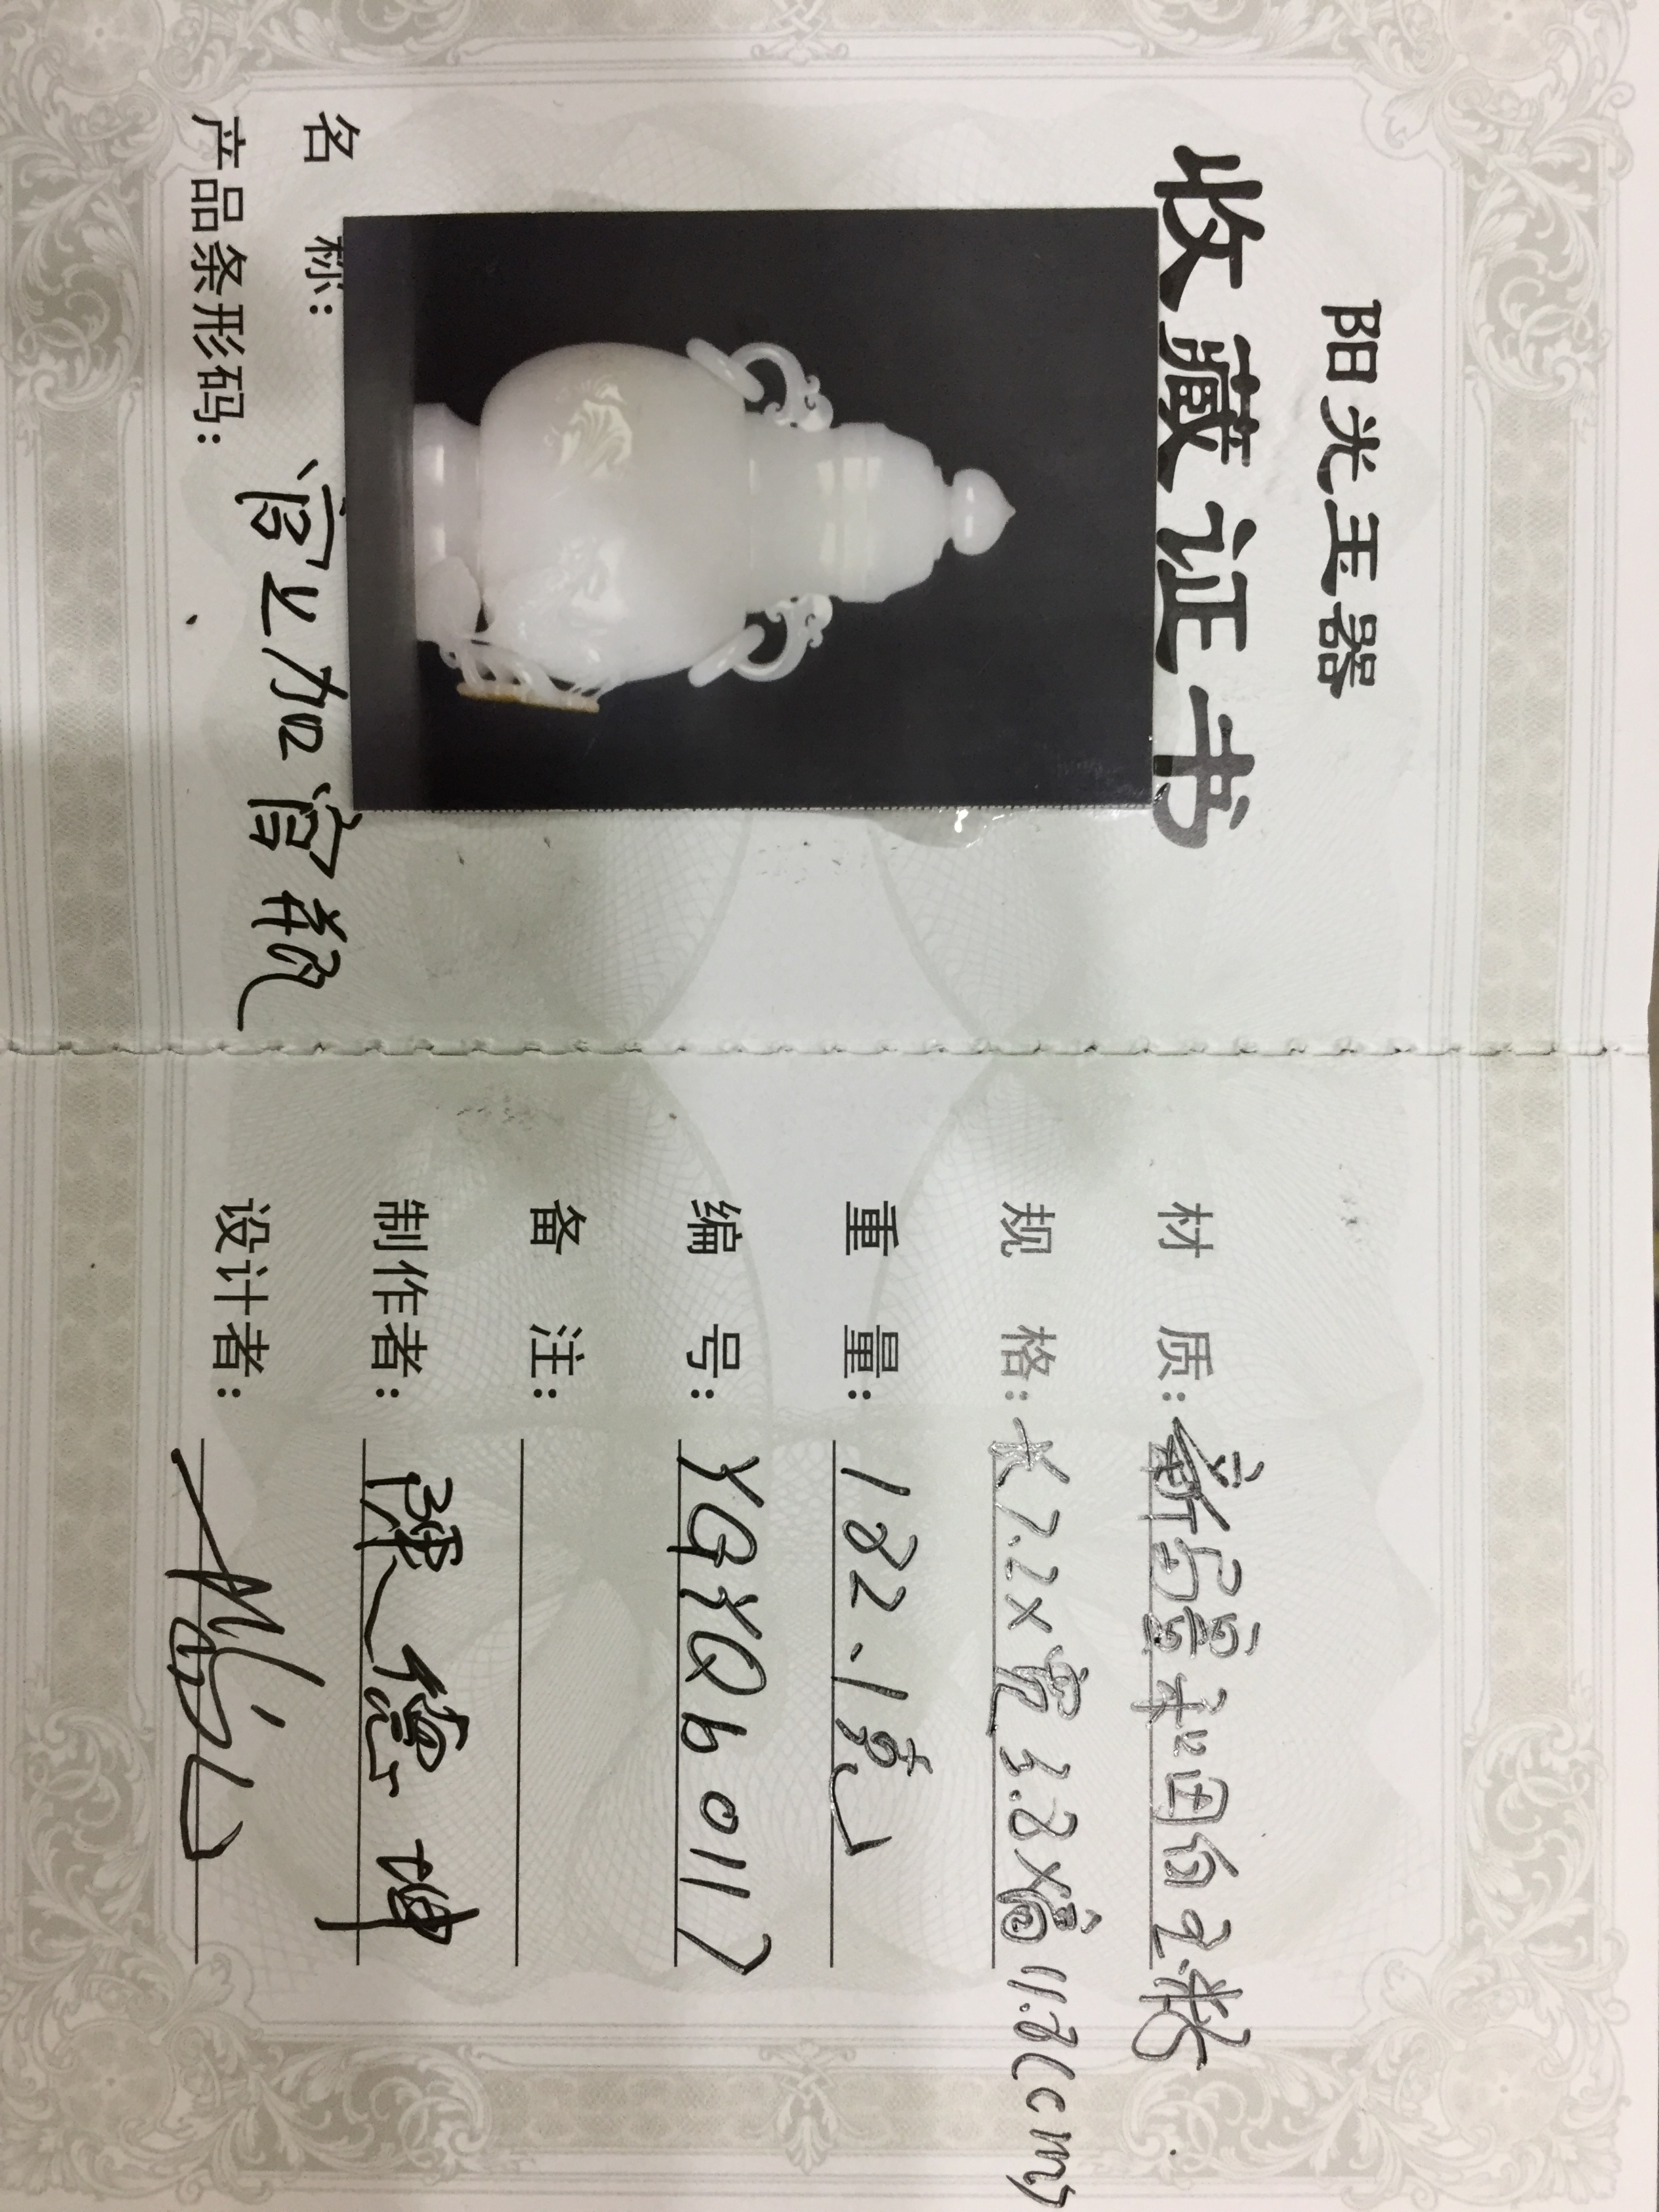 阳光玉器
收藏证书
名 称: 官上加官瓶
产品条形码:
材 质: 新疆和田白玉籽
规 格: 长7.2×宽3.8×高11.8(cm)
重 量: 182.1克
编 号: YGYQb0117
备 注:
制作者: 陳德坤
设计者: